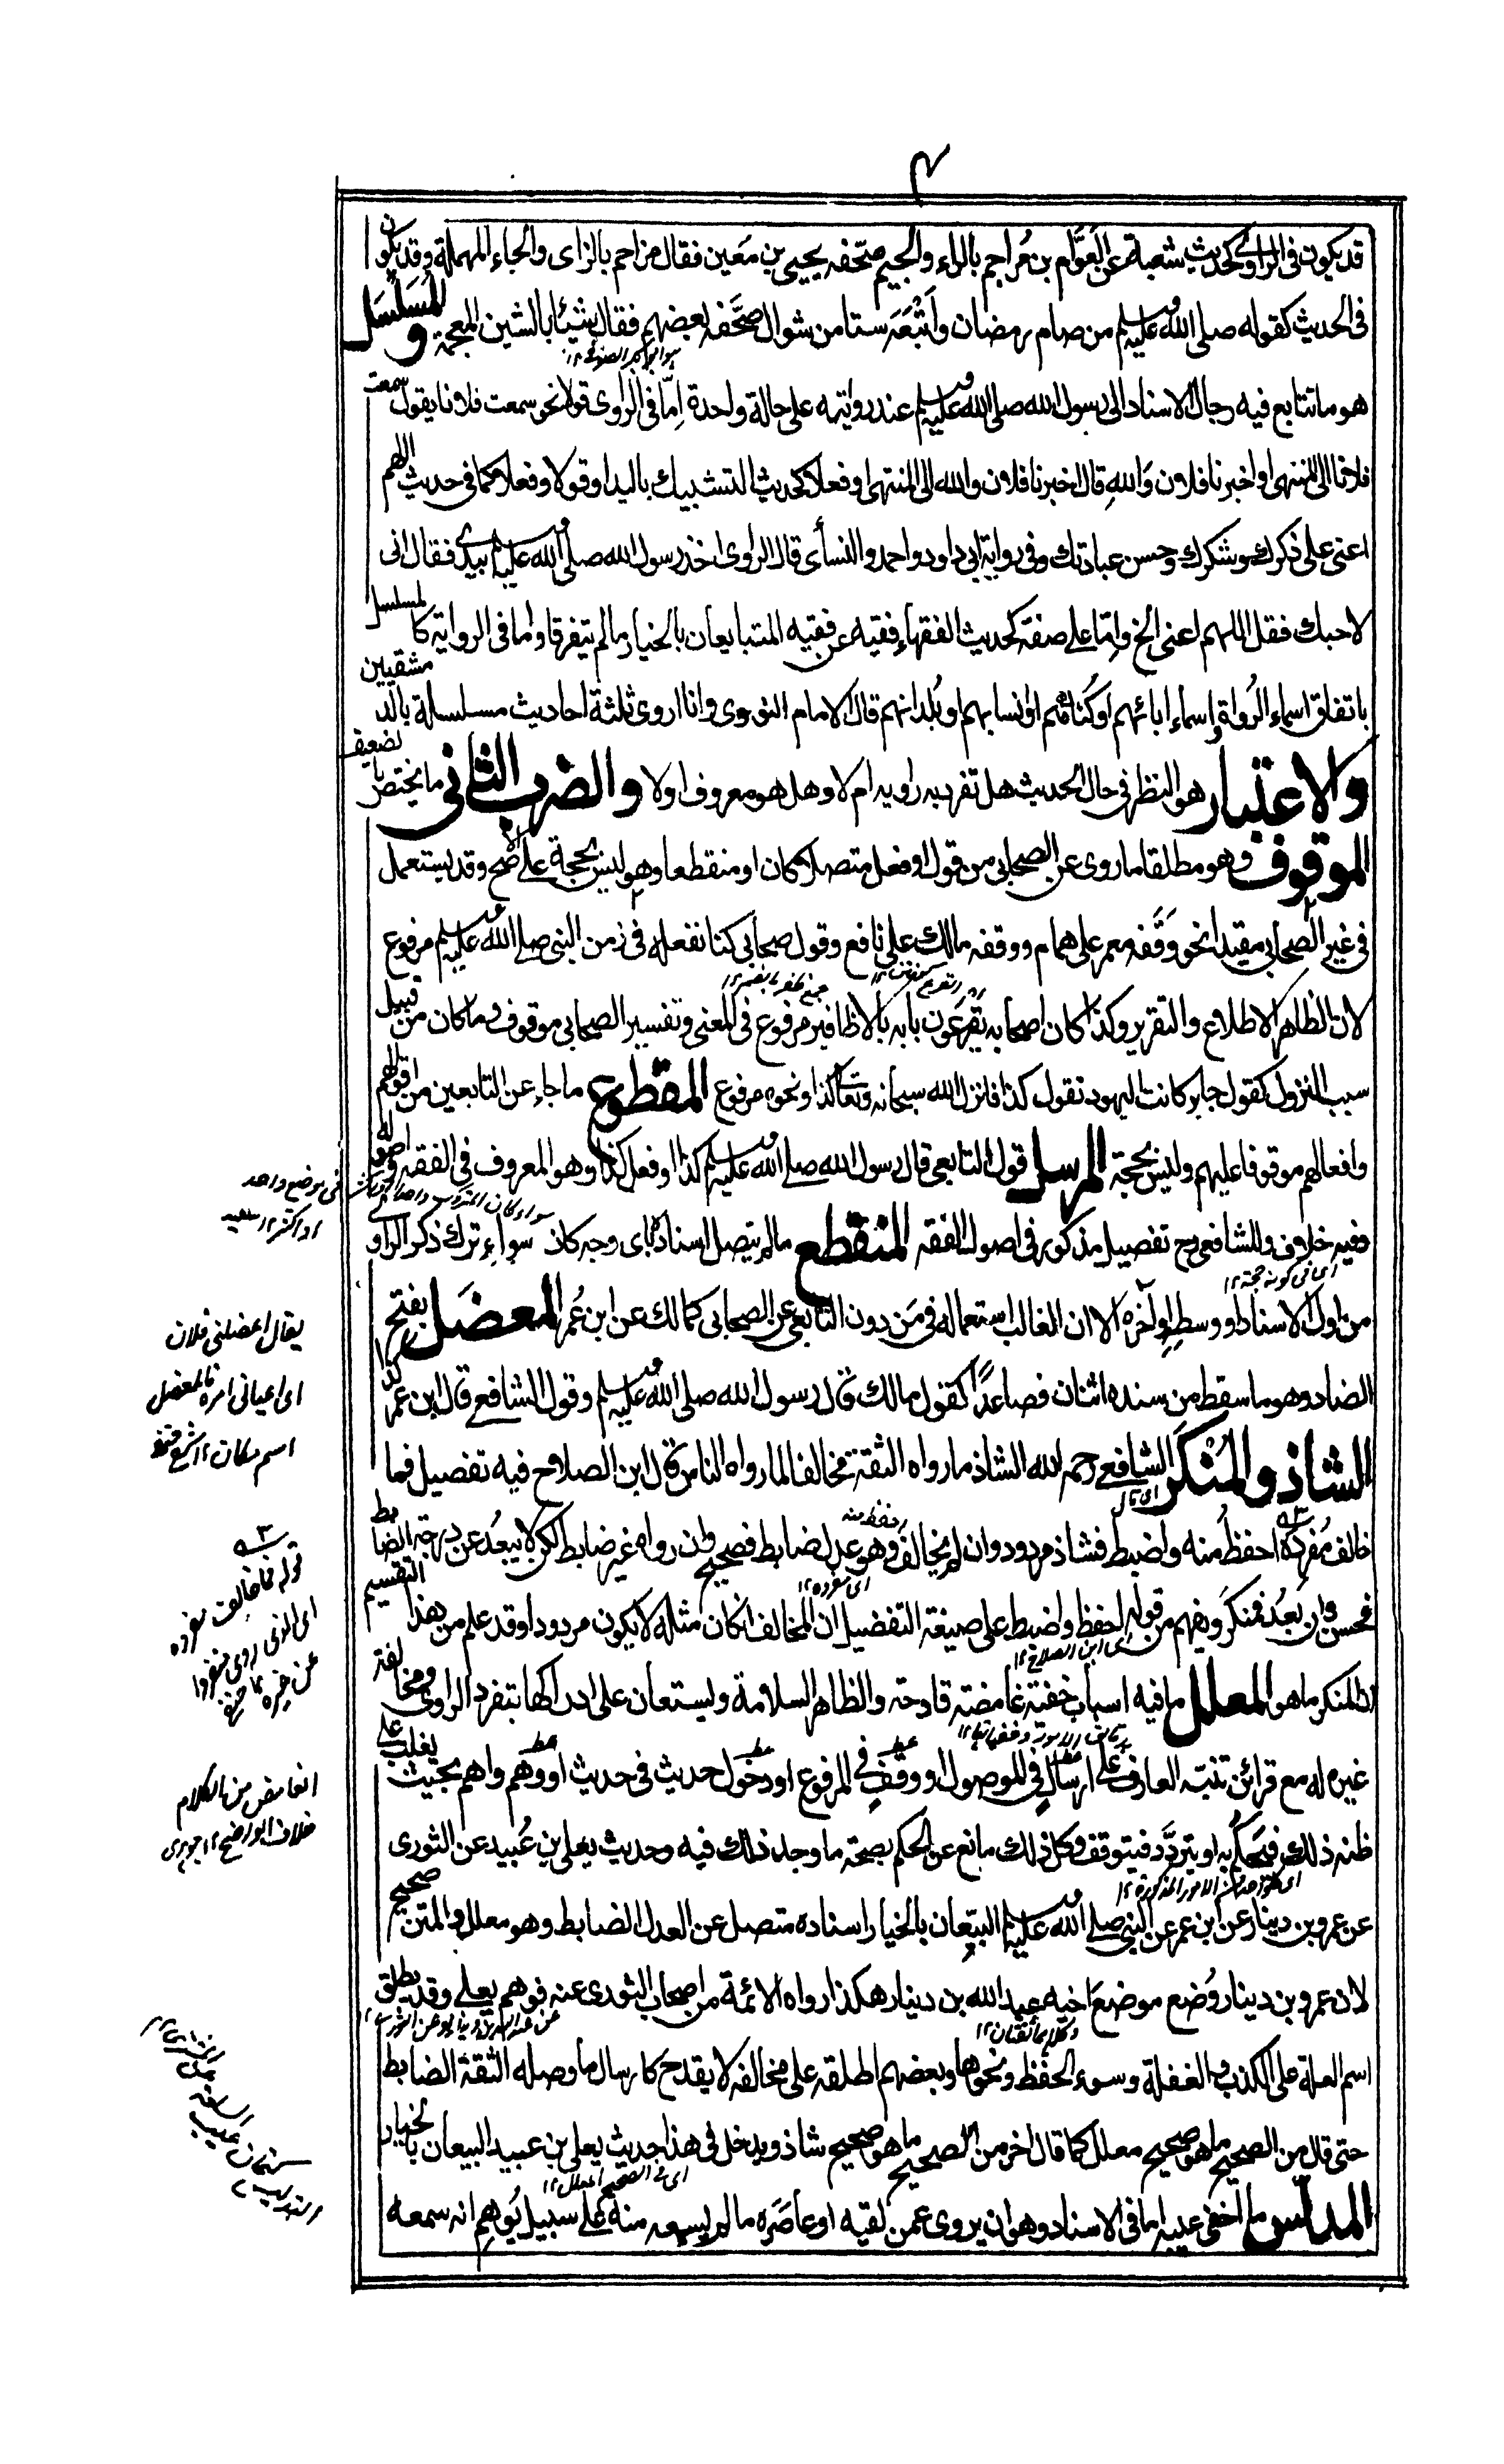 ٤
قد يكون فى الراوى كحديث شعبة عن العَوَّام بن مُراجم بالراء والجيم صحّفه يحيى بن مَعين فقال مزاحم بالزاى والحاء المهملة وقد يكون
فى الحديث كقوله صلى الله عليه وسلم من صام رمضان وأتْبَعَه ستا من شوال صحَّفه بعضهم فقال شيئا بالشين المعجمة والمُسَلْسَل
هو ابو بكر الصولى ١٢
هو ما تتابع فيه رجال الاسناد الى رسول الله صلى الله عليه وسلم عند روايته على حالة واحدة اِمّا فى الراوى قولا نحو سمعت فلانا يقول سمعت
فلانا الى المنتهى او اخبرنا فلان وَاللهِ قال اخبرنا فلان والله الى المنتهى او فعلا كحديث التشبيك باليد او قولا وفعلا كما فى حديث اللهم
اعنى على ذكرك وشكرك وحسن عبادتك وفى رواية ابى داود واحمد والنسأى قال الراوى اخذ رسول الله صلى الله عليه وسلم بيدى فقال انى
لاحبك فقل اللهم اعنى الخ وامّا على صفة كحديث الفقهاء فقيه عن فقيه المتبايعان بالخيار مالم يتفرقا واما فى الرواية كالمسلسل
باتفاق اسماء الرُواة واسماء ابائهم او كُناهم او انسابهم او بُلدانهم قال الامام النووى وانا اروى ثلثة احاديث مسلسلة بالدمشقيين
والاعتبار هو النظر فى حال الحديث هل تفرد به راويه ام لا وهل هو معروف اولا والضرب الثانى ما يختص بالضعيف
الموقوف وهو مطلقا ما روى عن الصحابى من قول او فعل متصلا كان او منقطعا وهو ليس بحجة على الاصح وقد يستعمل
فى غير الصحابى مقيدا نحو وَقَفه معمر على همام ووقفه مالك على نافع وقول صحابى كنا نفعله فى زمن النبى صلى الله عليه وسلم مرفوع
لان الظاهر الاطلاع والتقرير وكذا كان اصحابه يَقرعُون بابه بالاظافير مرفوع فى المعنى وتفسير الصحابى موقوف وما كان من قبيل
سبب النزول كقول جابر كانت اليهود تقول كذا فانزل الله سبحانه وتعالى كذا ونحوه مرفوع المقطوع ما جاء عن التابعين من اقوالهم
وافعالهم موقوفا عليهم وليس بحجة المرسل قول التابعى قال رسول الله صلى الله عليه وسلم كذا او فعل كذا وهو المعروف فى الفقه واصوله
وفيه خلاف وللشافعى رح تفصيل مذكور فى اصول الفقه المنقطع مالم يتصل اسناده باى وجه كان سواء ترك ذكر الراوى
اى فى كونه حجة ١٢
من اول الاسناد او وسطه او آخره الا ان الغالب استعماله فى مَن دون التابعى عن الصحابى كمالك عن ابن عُمر المعضَل بفتح
الضاد وهو ما سقط من سنده اثنان فصاعدًا كقول مالك قال رسول الله صلى الله عليه وسلم وقول الشافعى قال ابن عمر كذا
الشاذ والمُنْكَر الشافعى رحمه الله الشاذ ما رواه الثقة مخالفا لما رواه الناس قال ابن الصلاح فيه تفصيل فما
خالف مُفرَدُه احفظَ منه واضبط فشاذ مردود وان لم يخالف وهو عدل ضابط فصحيح وان رواه غير ضابط لكن لا يبعُد عن درجة الضابط
اى مفرده ١٢
فحسن وان بعُد فمنكر ويفهم من قوله احفظ واضبط على صيغة التفضيل ان المخالف ان كان مثله لا يكون مردودا وقد علم من هذا التقسيم
اى ابن الصلاح ١٢
ان المنكر ما هو المعلل ما فيه اسباب خفية غامضة قادحة والظاهر السلامة ويستعان على ادراكها بتفرد الراوى ومخالفة
غيره له مع قرائن تنبّه العارف على ارسالٍ فى الموصول او وقفٍ فى المرفوع او دخول حديث فى حديث او وهم واهم بحيث يغلب على
ظنه ذلك فيحكم به او يتردَّد فيتوقف وكل ذلك مانع عن الحكم بصحة ما وجد ذلك فيه وحديث يعلى بن عُبيد عن الثورى
اى كل واحد من الامور المذكورة ١٢
عن عمرو بن دينار عن ابن عمر عن النبى صلى الله عليه وسلم البيّعان بالخيار اسناده متصل عن العدل الضابط وهو معلل والمتن صحيح
لان عمرو بن دينار وُضع موضعَ اخيه عبد الله بن دينار هكذا رواه الائمة من اصحاب الثورى عنه فوهم يعلى وقد يطلق
اسم العلة على الكذب والغفلة وسوء الحفظ ونحوها وبعضهم اطلقه على مخالفة لا يقدح كارسال ما وصله الثقة الضابط
حتى قال من الصحيح ما هو صحيح معلل كما قال آخر من الصحيح ما هو صحيح شاذ ويدخل فى هذا حديث يعلى بن عبيد البيعان بالخيار
اى فى الصحيح المعلل ١٢
المدلّس ما اخفى عيبه اما فى الاسناد وهو ان يروى عمن لقيه او عاصَره ما لم يسمعه منه على سبيل يُوهم انه سمعه
سواء كان المتروك واحدا
فى موضع واحد
او اكثر ١٢ سعيد
يقال اعضلنى فلان
اى اعيانى امره فالمعضل
قوله فما خالف مفرده
اى الذى روى منفردا
عن غيره
الغامض من الكلام
خلاف الواضح ١٢ جوهرى